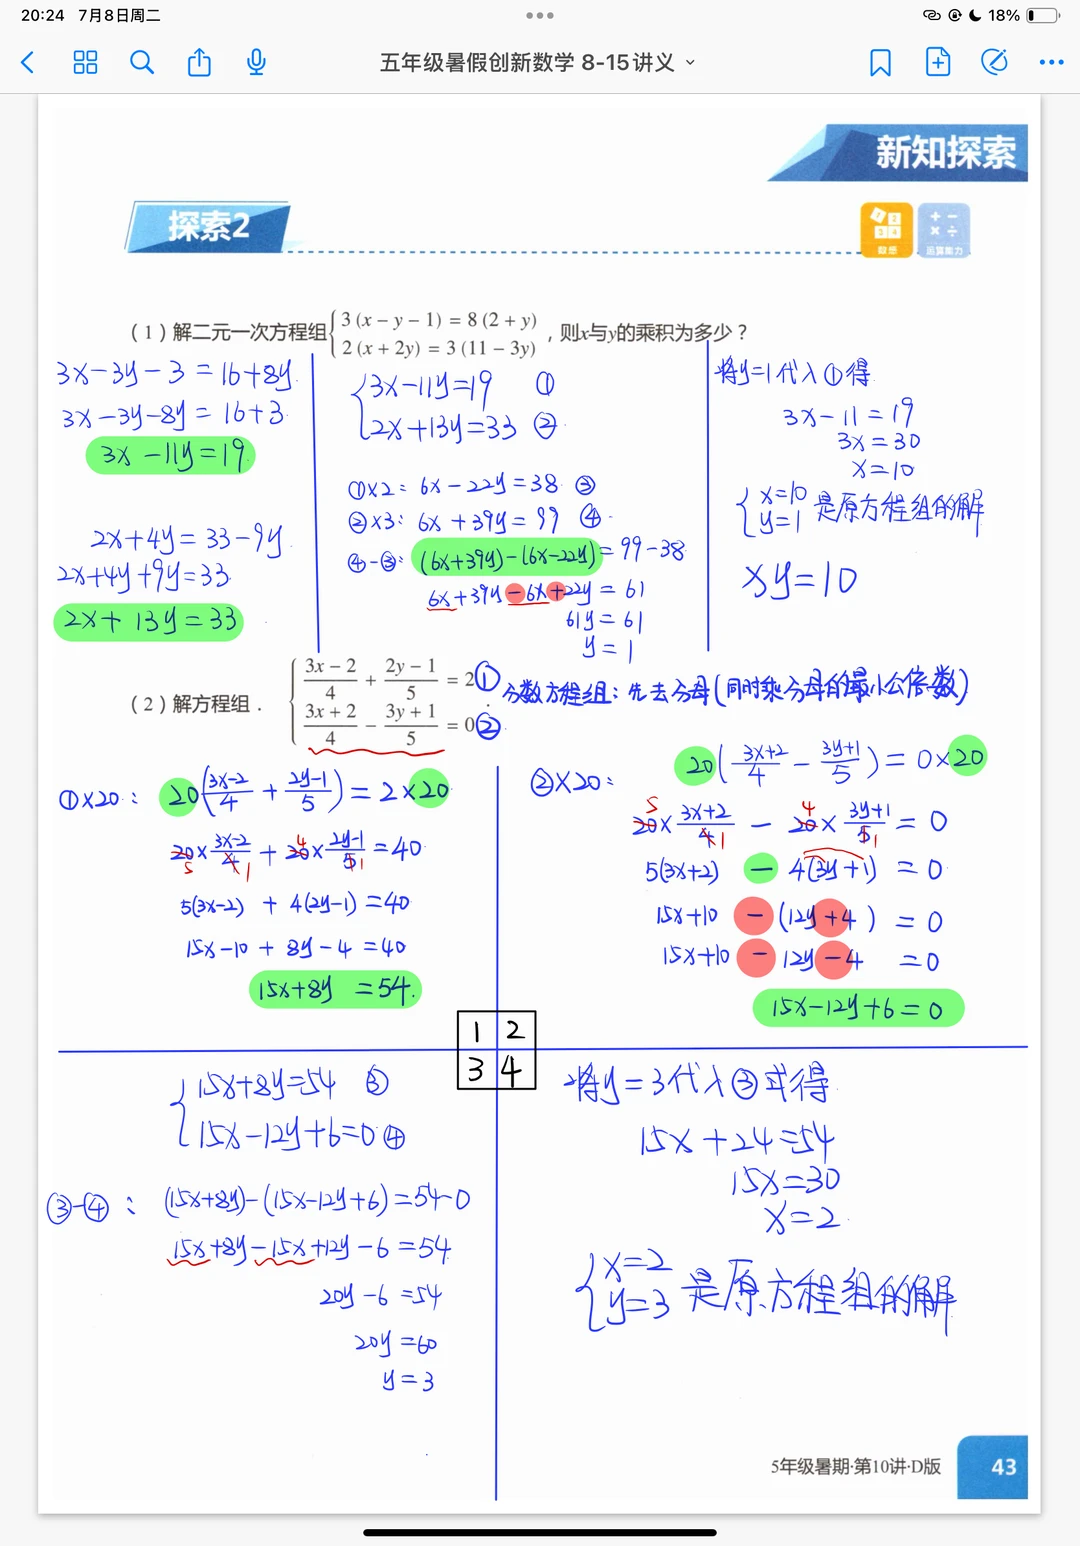 20:24 7月8日周二
18%
五年级暑假创新数学 8-15讲义
新知探索
探索2
数感
运算能力
(1) 解二元一次方程组{3(x-y-1)=8(2+y)
2(x+2y)=3(11-3y) ,则x与y的乘积为多少?
3x-3y-3=16+8y
3x-3y-8y=16+3
3x-11y=19
2x+4y=33-9y
2x+4y+9y=33
2x+13y=33
{3x-11y=19 ①
2x+13y=33 ②
①×2: 6x-22y=38 ③
②×3: 6x+39y=99 ④
④-③: (6x+39y)-(6x-22y)=99-38
6x+39y-6x+22y=61
61y=61
y=1
将y=1代入①得
3x-11=19
3x=30
x=10
{x=10
y=1 是原方程组的解
xy=10
(2) 解方程组.
{(3x-2)/4+(2y-1)/5=2 ①
(3x+2)/4-(3y+1)/5=0 ②
分数方程组:先去分母(同时乘分母的最小公倍数)
①×20: 20((3x-2)/4+(2y-1)/5)=2×20
20×(3x-2)/4+20×(2y-1)/5=40
5 1 4 1
5(3x-2)+4(2y-1)=40
15x-10+8y-4=40
15x+8y=54.
②×20: 20((3x+2)/4-(3y+1)/5)=0×20
5 4
20×(3x+2)/4-20×(3y+1)/5=0
1 1
5(3x+2)-4(3y+1)=0
15x+10-(12y+4)=0
15x+10-12y-4=0
15x-12y+6=0
1 2
3 4
{15x+8y=54 ③
15x-12y+6=0 ④
③-④: (15x+8y)-(15x-12y+6)=54-0
15x+8y-15x+12y-6=54
20y-6=54
20y=60
y=3
将y=3代入③式得
15x+24=54
15x=30
x=2
{x=2
y=3 是原方程组的解
5年级暑期·第10讲·D版
43